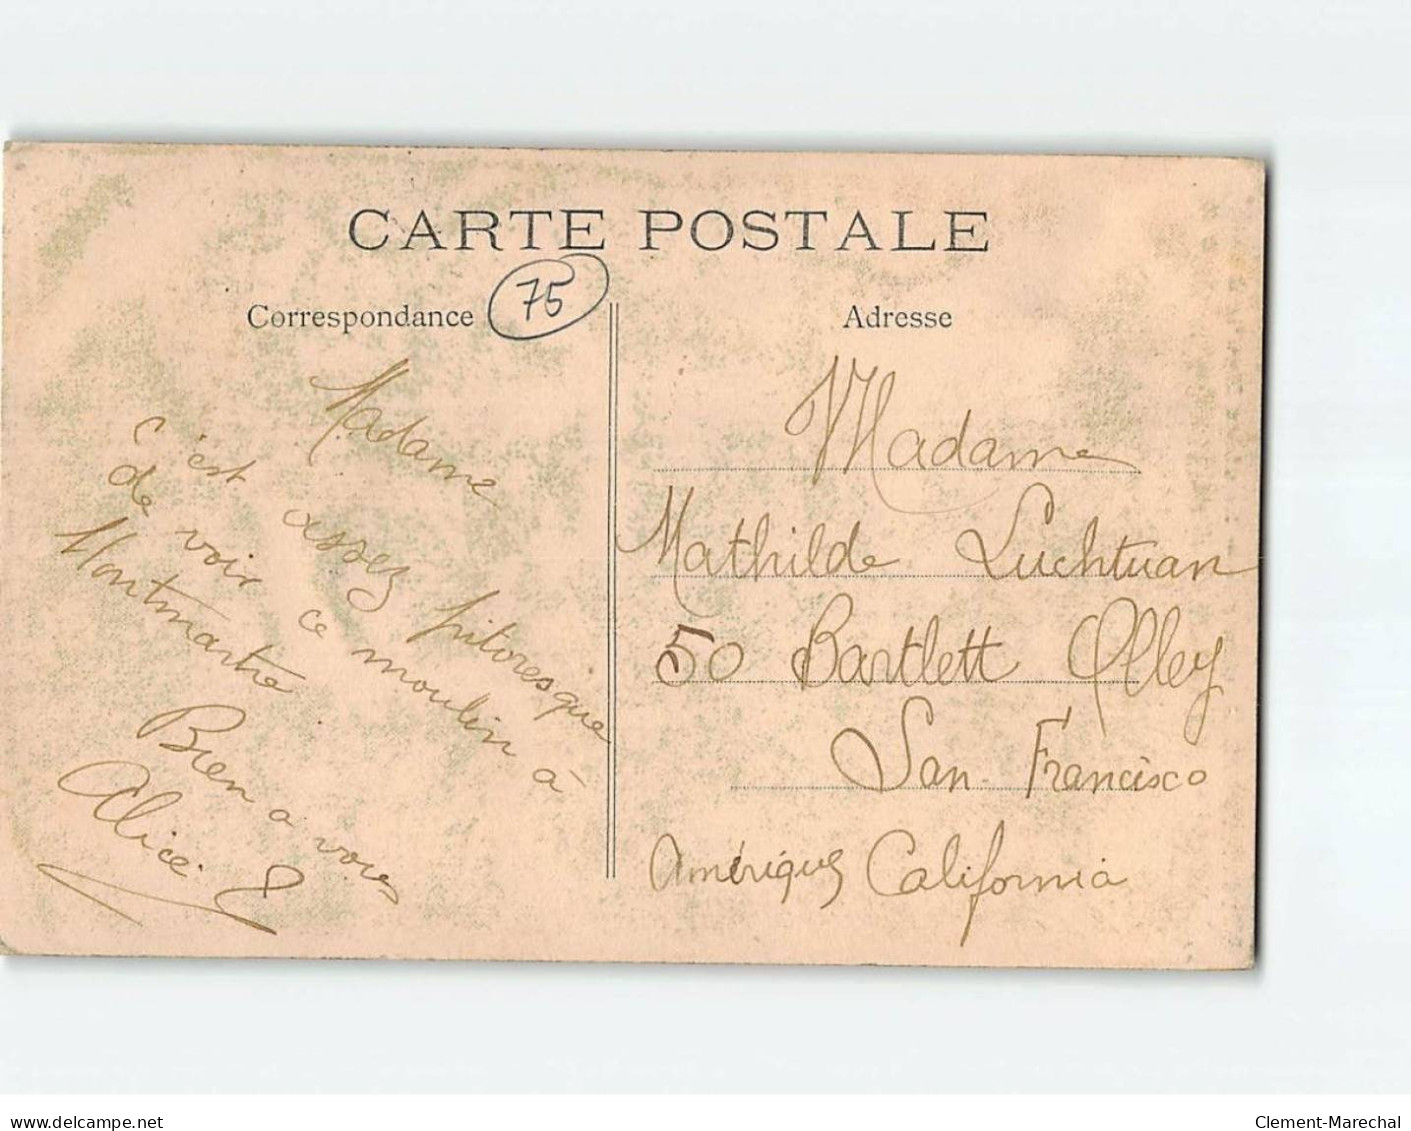 CARTE POSTALE
75
Correspondance
Adresse
Madame
c'est assez pitoresque
de voir ce moulin à
Montmartre
Bien a vous
Alice
Madame
Mathilde Luchtuan
50 Bartlett Alley
San Francisco
Amérique California
www.delcampe.net
Clement-Marechal